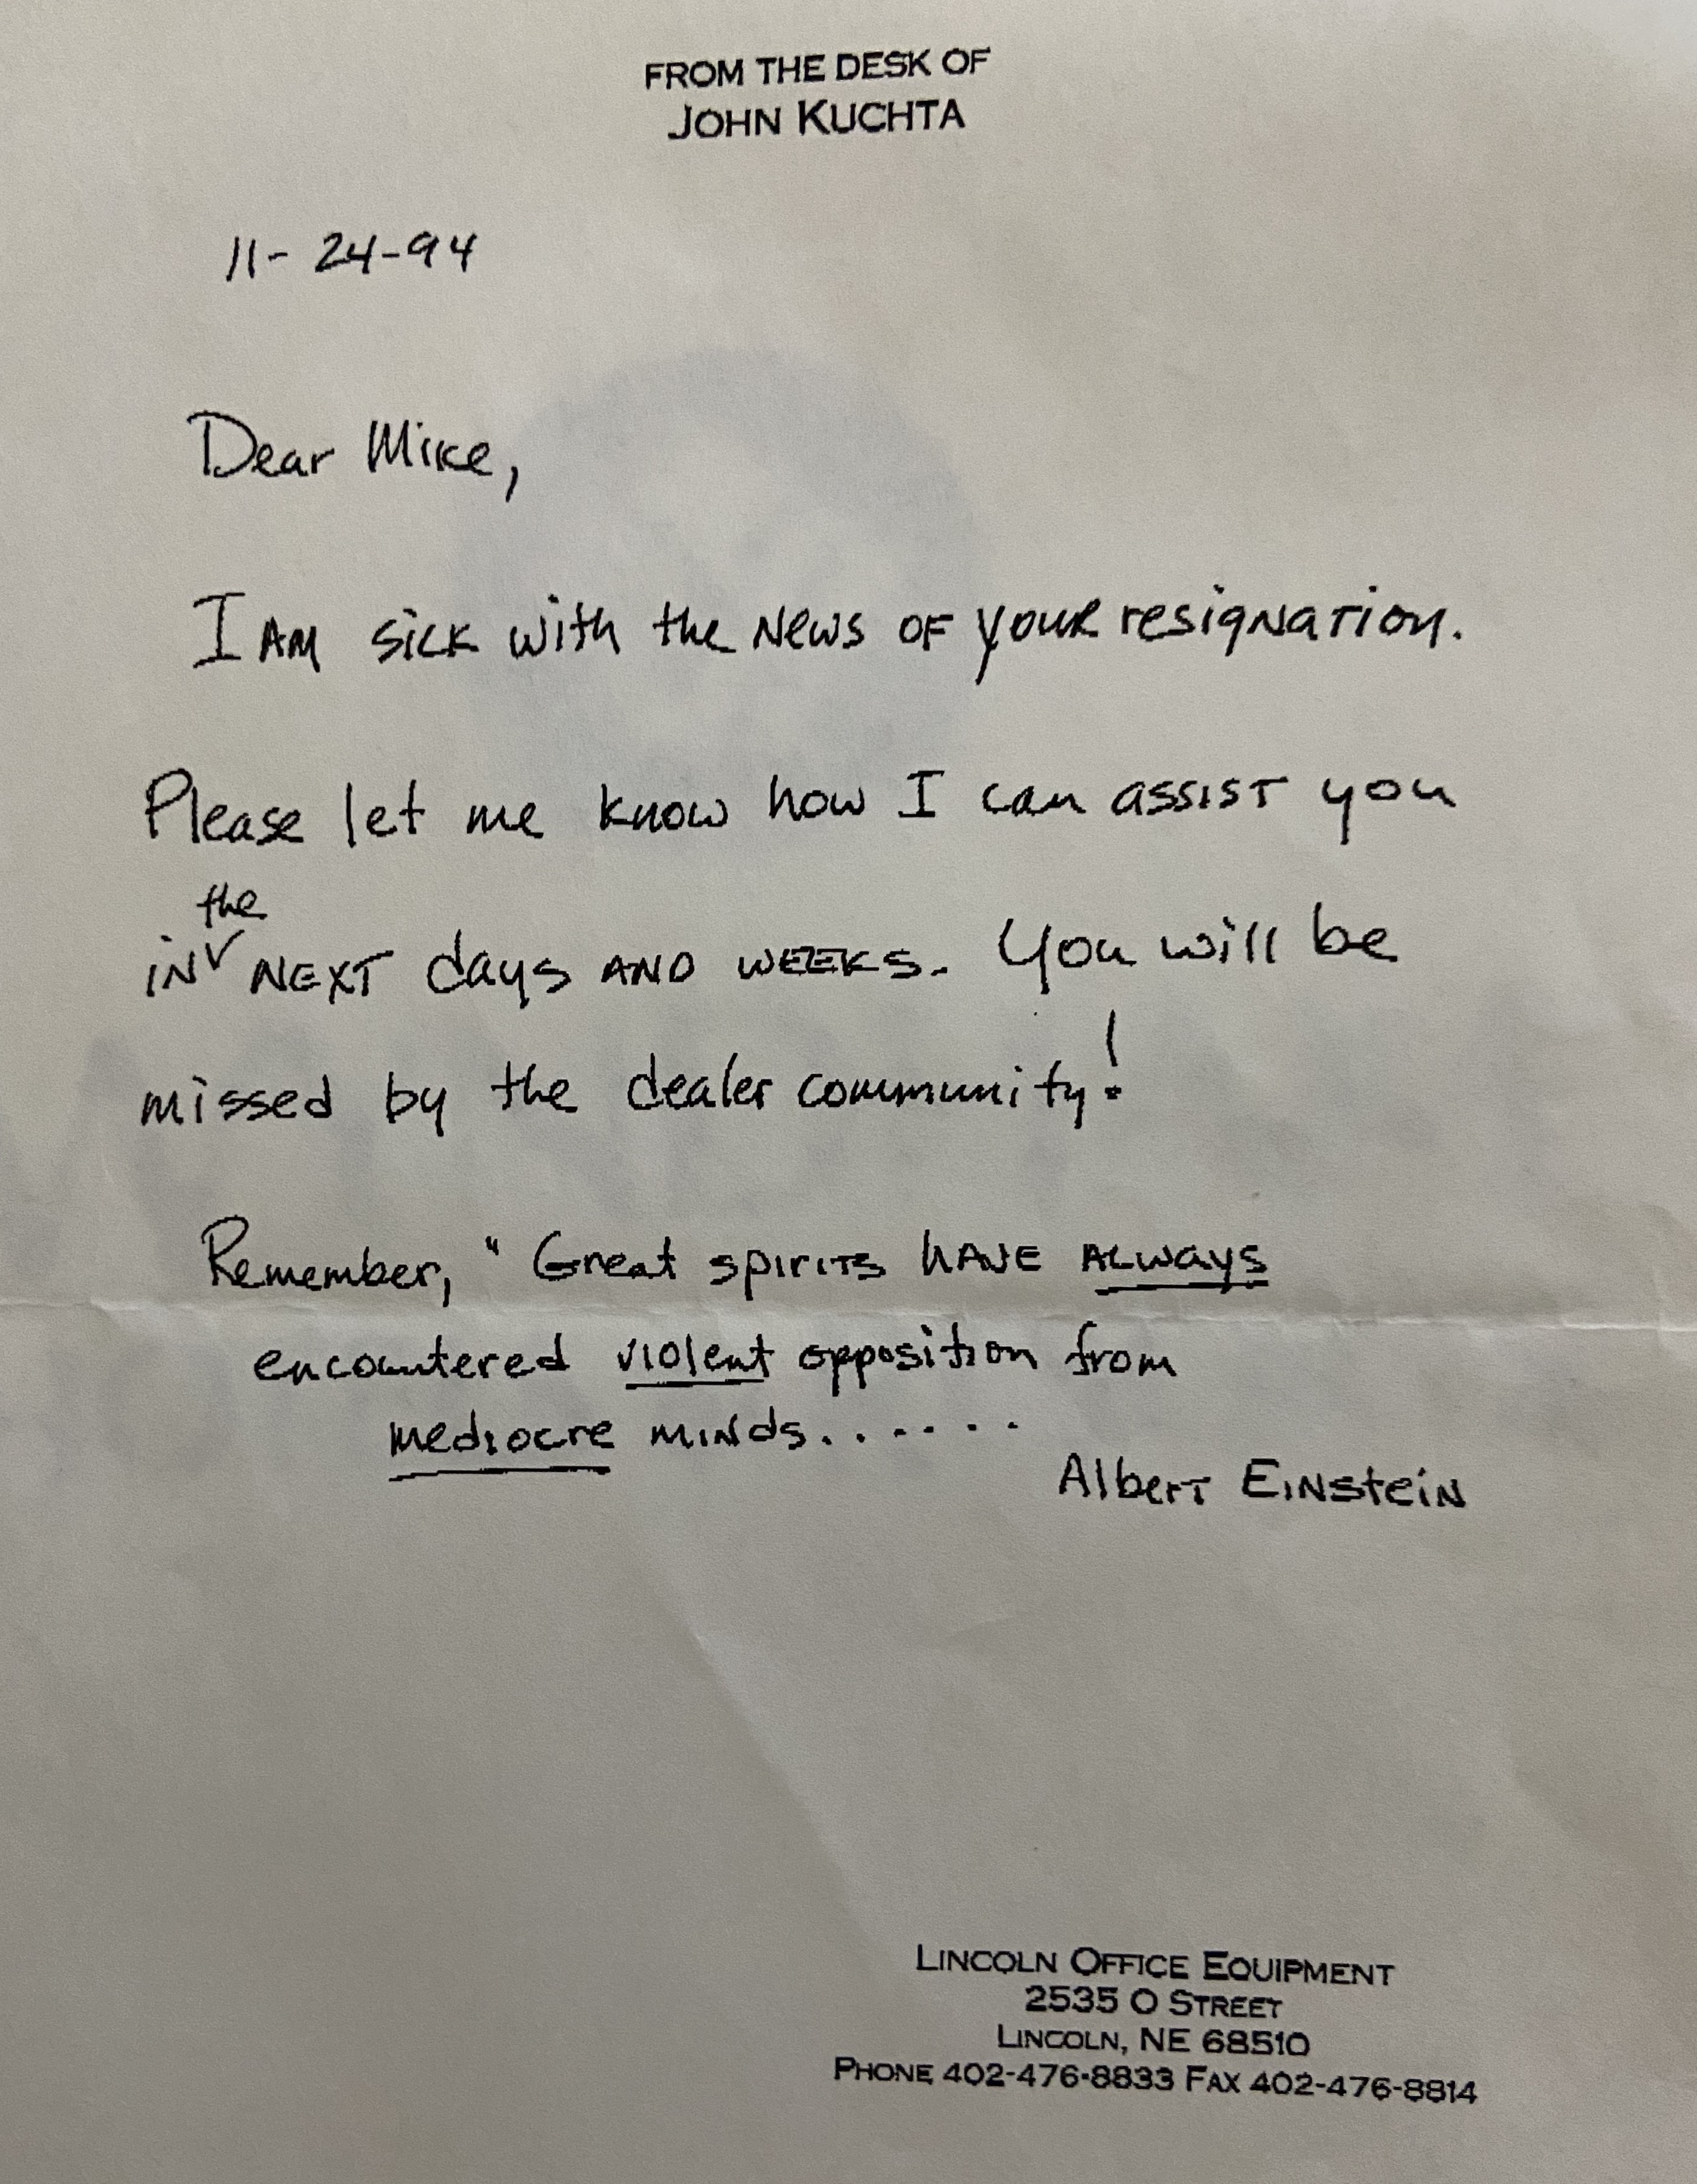 FROM THE DESK OF
JOHN KUCHTA
11-24-94
Dear Mike,
I AM sick with the News OF YOUR resignation.
Please let me know how I can assist you
the
in NEXT days AND WEEKS. You will be
missed by the dealer community!
Remember, " Great spirits HAVE ALWAYS
encountered violent opposition from
mediocre minds.......
Albert Einstein
LINCOLN OFFICE EQUIPMENT
2535 O STREET
LINCOLN, NE 68510
PHONE 402-476-8833 FAX 402-476-8814